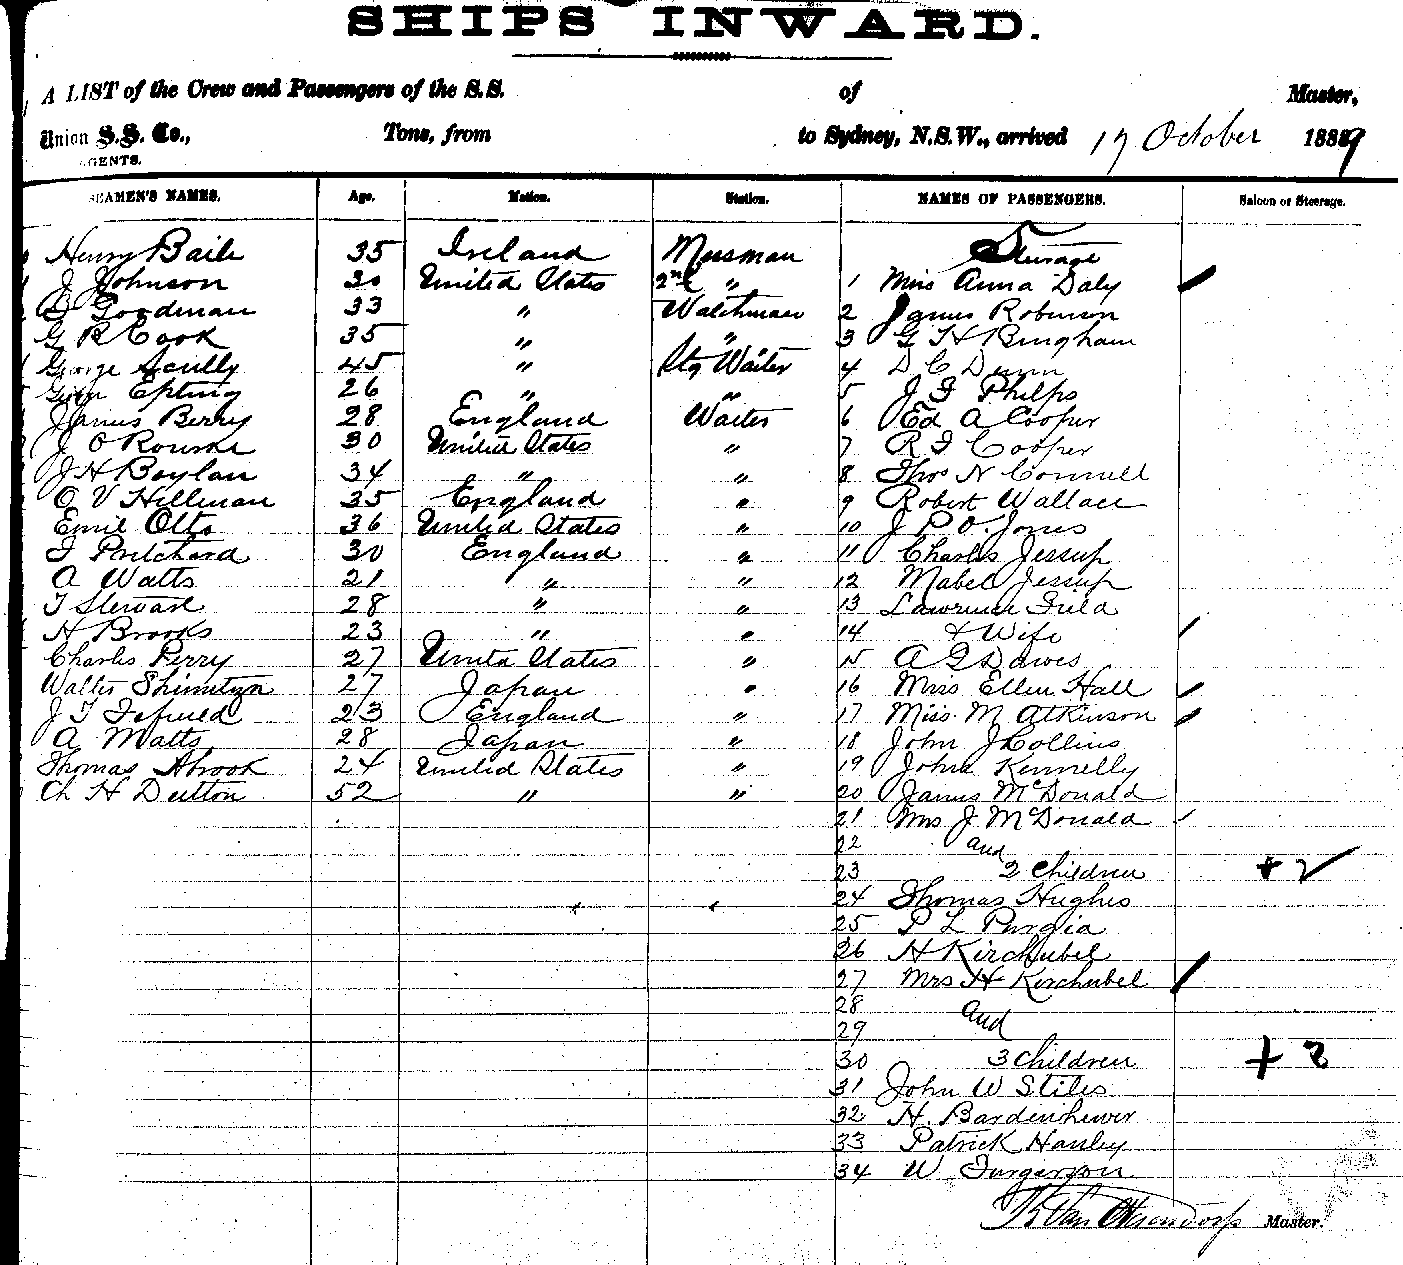 SHIPS INWARD.
A LIST of the Crew and Passengers of the S.S. of Master,
Union S.S. Co., Tons, from to Sydney, N.S.W., arrived 17 October 1889
GENTS.
SEAMEN'S NAMES. Age. Nation. Station. NAMES OF PASSENGERS. Saloon or Steerage.
Steerage
Henry Baile 35 Ireland Messman
J Johnson 30 United States 2nd " 1 Miss Anna Daly
Goodman 33 " Watchman 2 James Robinson
G R Cook 35 " " 3 G H Bingham
George Scully 45 " Stg Waiter 4 D C Dunn
Epting 26 " " 5 J F Phelps
James Berry 28 England Waiter 6 Ed A Cooper
J O Rourke 30 United States " 7 R F Cooper
J H Boylan 34 " " 8 Thos N Connell
O V Hillman 35 England " 9 Robert Wallace
Emil Otto 36 United States " 10 J P O. Jones
F Pritchard 30 England " 11 Charles Jessup
A Watts 21 " " 12 Mabel Jessup
T Steward 28 " " 13 Lawrence
H Brooks 23 " " 14 & Wife
Charles Perry 27 United States " 15 A G Dawes
Walter 27 Japan " 16 Miss Ellen Hall
J T 23 England " 17 Miss. M Atkinson
A Matts 28 Japan " 18 John J Collins
Thomas 24 United States " 19 John Kennelly
Ch H Dutton 52 " " 20 James McDonald
21 Mrs J McDonald
22 and
23 2 Children + 2
24 Thomas Hughes
25 P L
26 H Kirchubel
27 Mrs H Kirchubel
28 and
29
30 3 Children + 3
31 John W Stiles
32 H. Bardenhewer
33 Patrick Hanley
34 W Furgerson
Master.